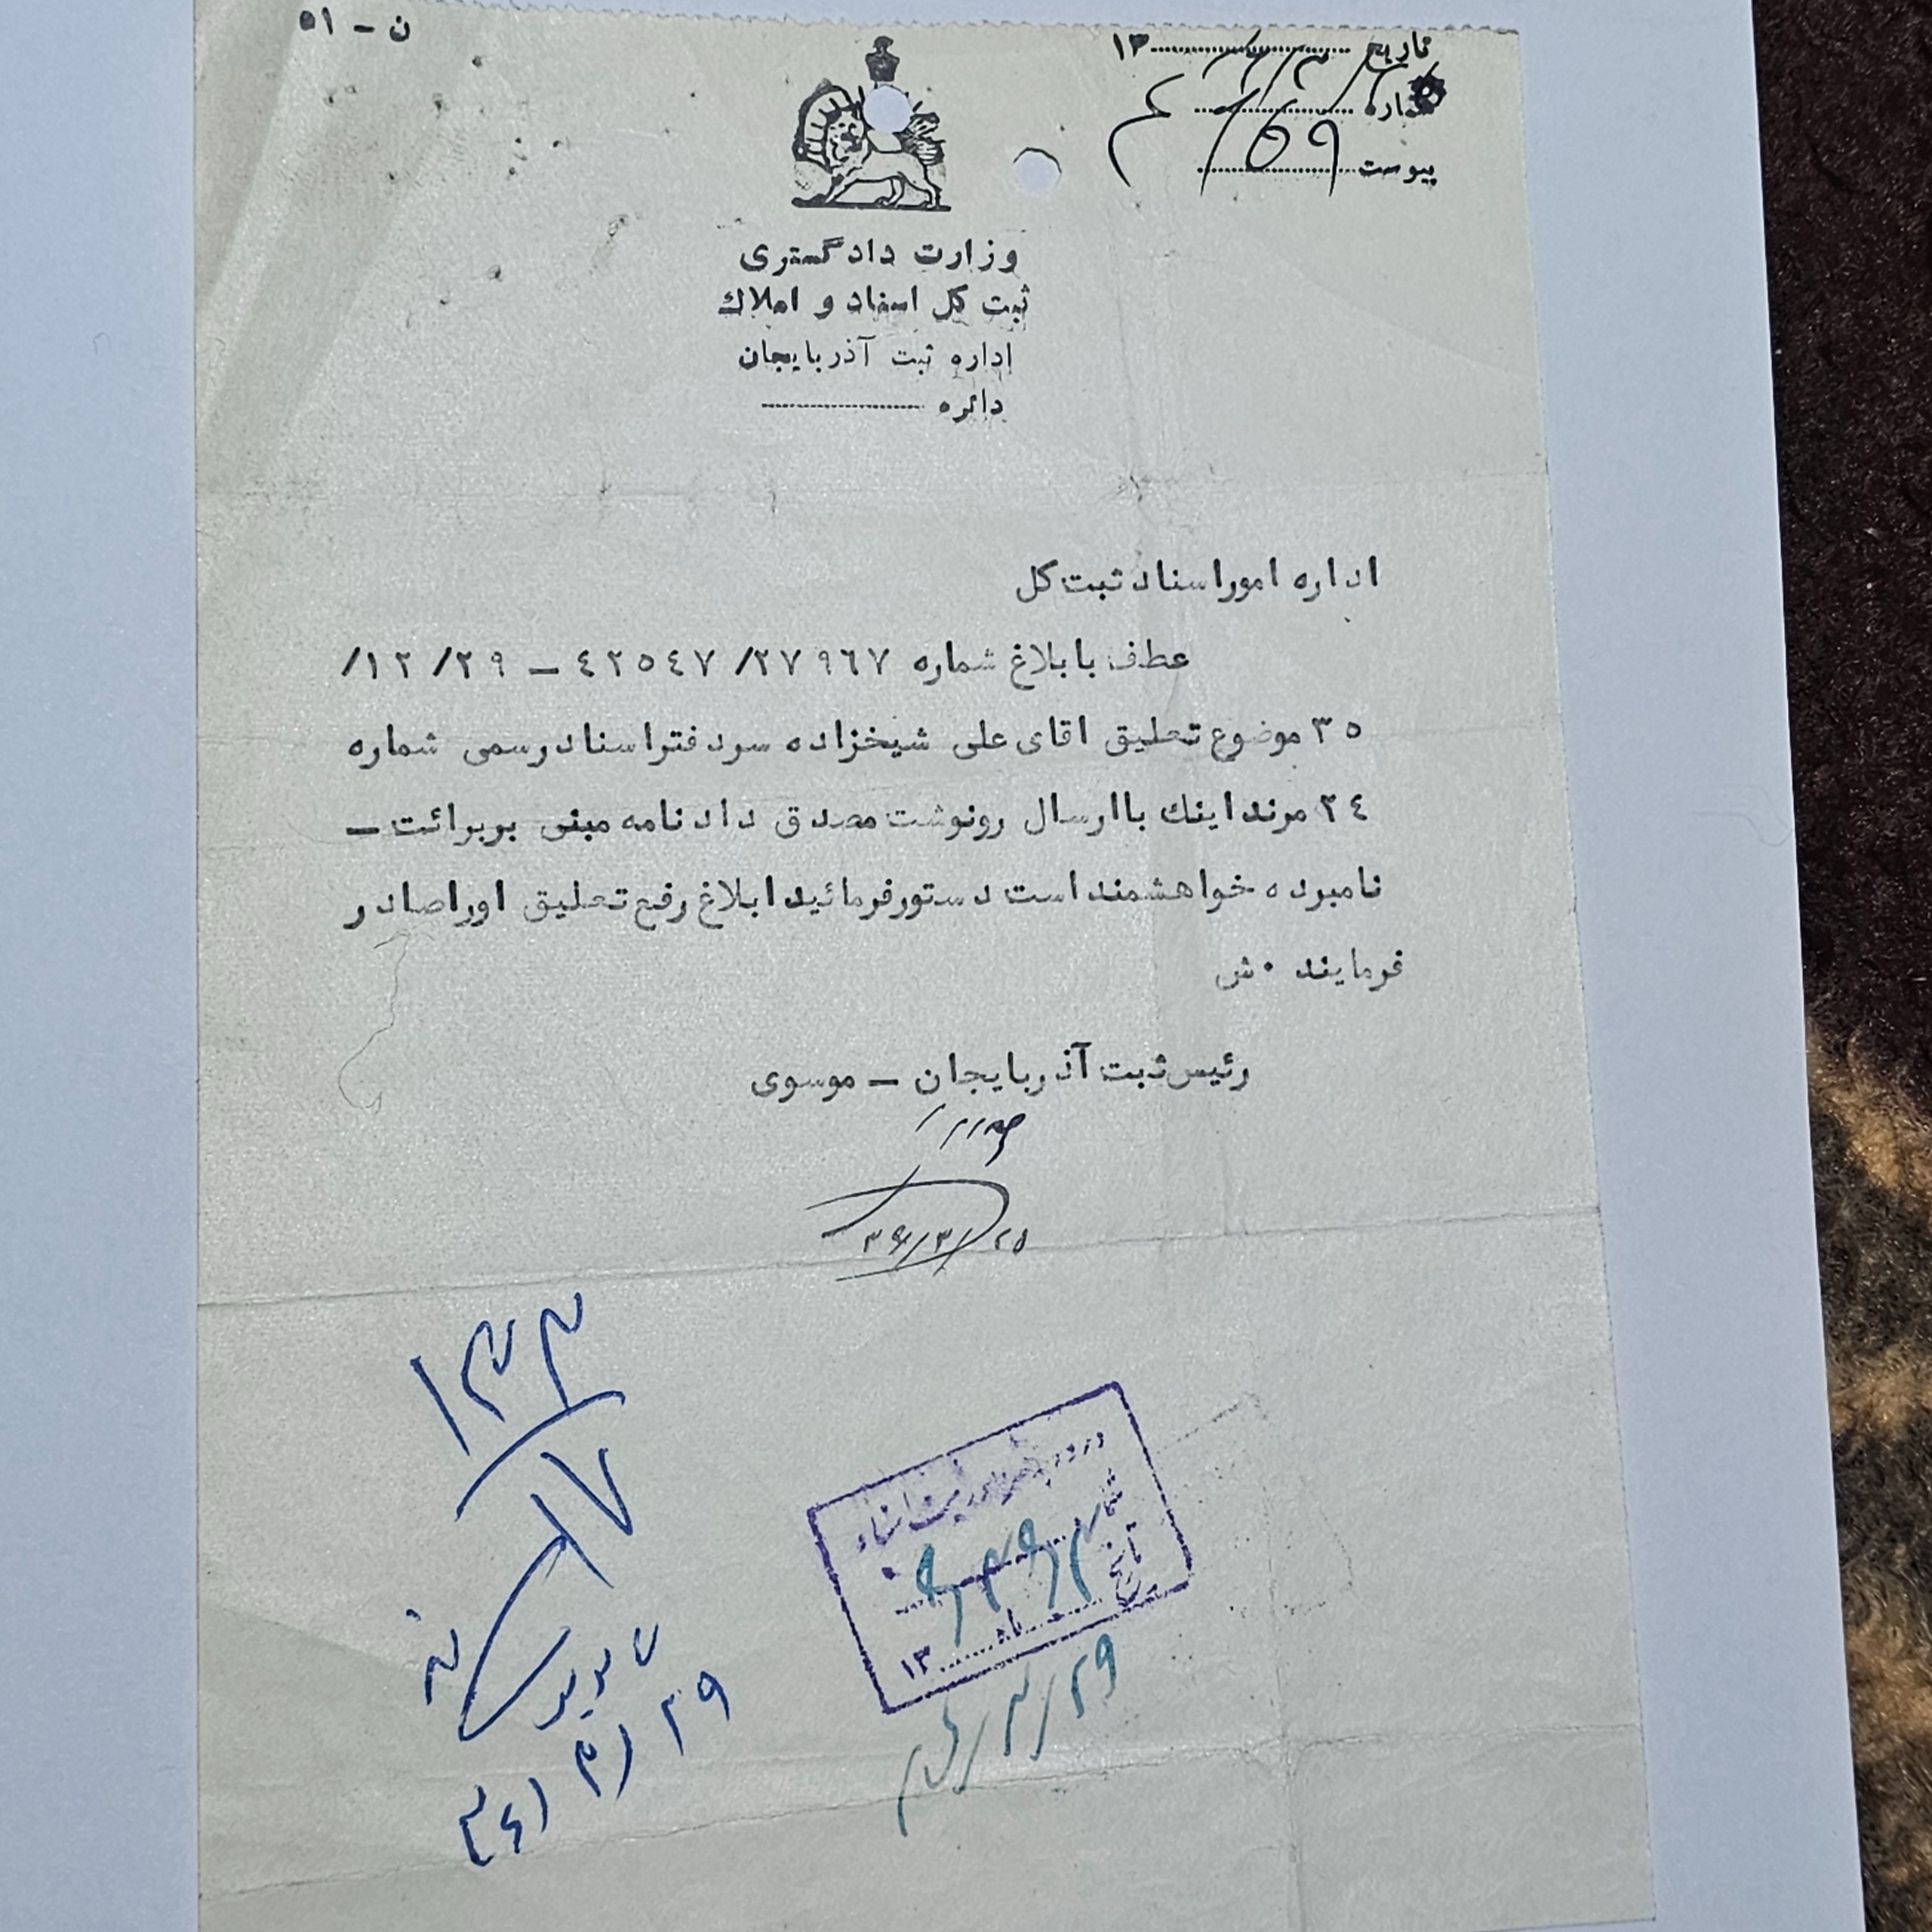 ن - ٥١
تاریخ ١٣
شماره
پیوست
وزارت دادگستری
ثبت کل اسناد و املاك
اداره ثبت آذربایجان
دائره
اداره امور اسناد ثبت کل
عطف با بلاغ شماره ٢٧٩٦٧/ ٤٢٥٤٧ – ٢٩/ ١٢/
٣٥ موضوع تعلیق اقای علی شیخزاده سردفتر اسناد رسمی شماره
٢٤ مرند اینك با ارسال رونوشت مصدق دادنامه مبنی بر برائت –
نامبرده خواهشمند است دستور فرمائید ابلاغ رفع تعلیق او را صادر
فرمایند ٠ ش
رئیس ثبت آذربایجان – موسوی
٢٥/٣/٣٦
شماره
تاریخ ١٣
٢٩/٣/٣٦
٢٩/٣/٣٦